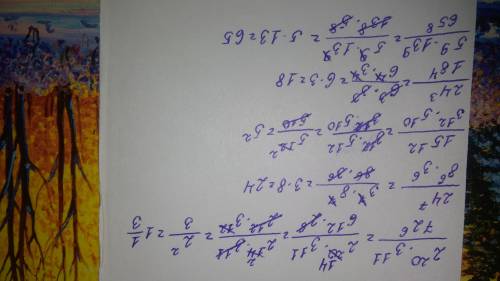 2²⁰·3¹¹/72⁶ = 2²⁰·3¹¹/6¹²·2⁶ = 2¹⁴·3¹¹/2¹²·3¹² = 2²/3 = 1 1/3
24⁷/8⁶·3⁶ = 3⁷·8⁷/8⁶·3⁶ = 3·8=24
15¹²/3¹²·5¹⁰ = 3¹²·5¹²/3¹²·5¹⁰ = 5¹²/5¹⁰ = 5²
24³/18⁴ = 6·3=18
5⁹·13⁹/65⁸ = 5⁹·13⁹/13⁸·5⁸ = 5·13=65